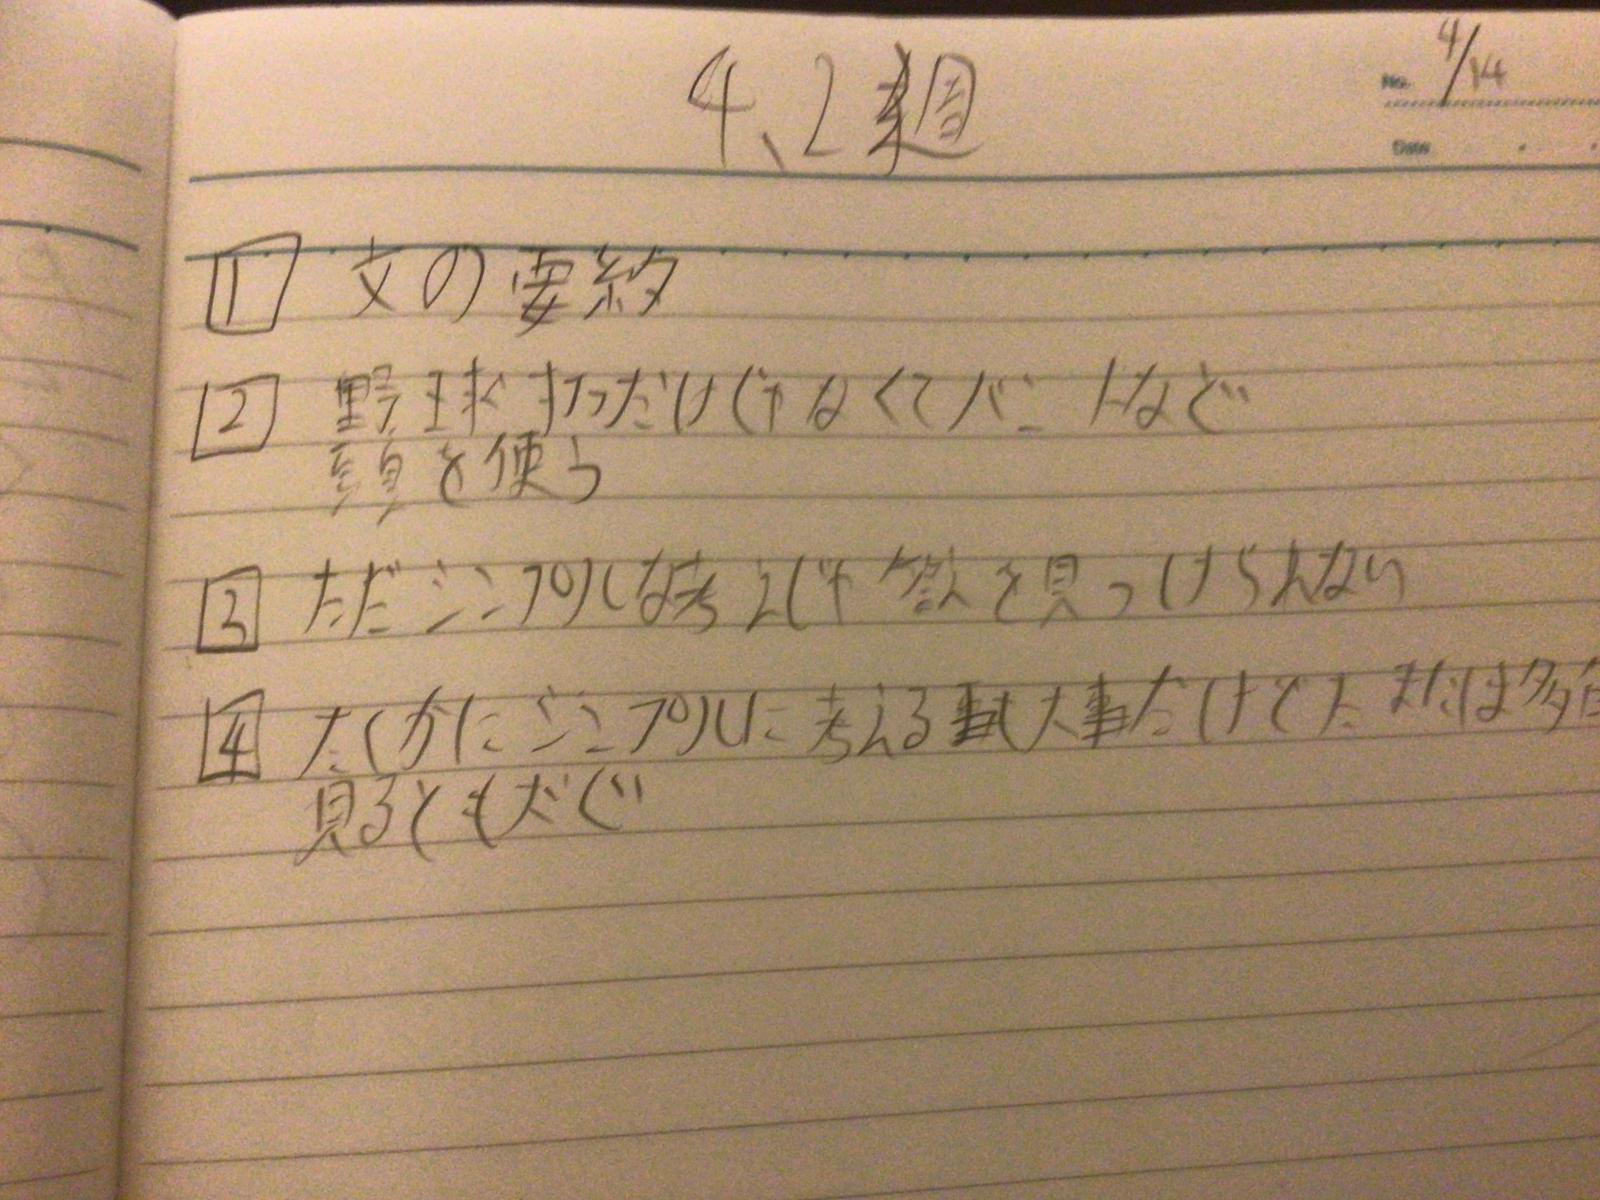 4、2週
4/14
No.
Date
1 文の要約
2 野球 打つだけじゃなくてバントなど
頭を使う
3 ただシンプルな考えじゃ答えを見つけられない
4 たしかにシンプルに考える事も大事だけど
見るともだ